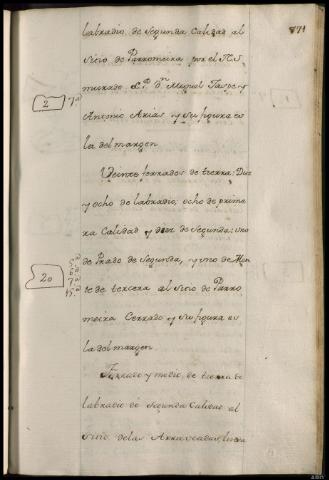 771
labradio de Segunda Calidad al
Sitio de Parromeira por el No
minado L.do D.n Miguel
2
7ª
Antonio Arias y su figura es
la del margen
Veinte ferrados de tierra: Diez
y ocho de labradio; ocho de prime
ra Calidad y diez de Segunda; uno
de Prado de Segunda, y uno de Mon
20
5ª
6ª
7ª
15ª
te de tercera al Sitio de Parro
meira Cerrado y su figura es
la del margen
Ferrado y medio de tierra de
labradio de Segunda Calidad al
Sitio de las